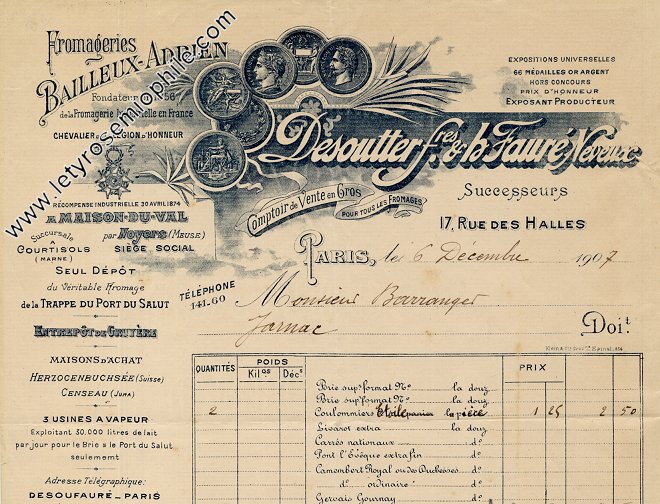 Fromageries
BAILLEUX-ADRIEN
de la Fromagerie
en France
CHEVALIER
D'HONNEUR
RÉCOMPENSE INDUSTRIELLE 30 AVRIL 1874
A MAISON-DU-VAL
par Noyers (MEUSE)
SIÈGE SOCIAL
Succursale
A
COURTISOLS
(MARNE)
SEUL DÉPÔT
du Véritable Fromage
de la TRAPPE DU PORT DU SALUT
ENTREPÔT DE GRUYÈRE
MAISONS D'ACHAT
HERZOGENBUCHSÉE (Suisse)
CENSEAU (JURA)
3 USINES A VAPEUR
Exploitant 30,000 litres de lait
par jour pour le Brie & le Port du Salut
seulement
Adresse Télégraphique:
DESOUFAURÉ _ PARIS
www.letyrosemiophile.com
EXPOSITIONS UNIVERSELLES
66 MÉDAILLES OR ARGENT
HORS CONCOURS
PRIX D'HONNEUR
EXPOSANT PRODUCTEUR
Desoutter f.res & h. Fauré, Neveux
Successeurs
Comptoir de Vente en Gros
POUR TOUS LES FROMAGES
17, RUE DES HALLES
PARIS, le 6 Décembre 1907
TÉLÉPHONE
141-60
Monsieur Barranger
Jarnac
Doit
QUANTITÉS
POIDS
Kilos
Décs
PRIX
Brie supr format No la douz
Brie supr format No la douz
2 Coulommiers Etoile panier la pièce 1 25 2 50
Livarot extra la douz
Carrés nationaux do
Pont l'Evêque extra fin do
Camembert Royal ou des Duchesses do
do ordinaire do
Gervais Gournay do